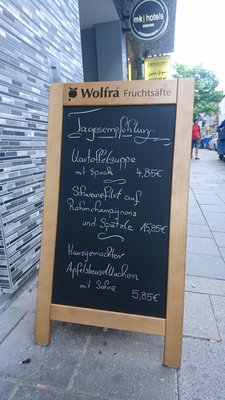 mk | hotels
Wolfra Fruchtsäfte
Tagesempfehlung
Kartoffelsuppe
mit Speck 4,85€
Schweinefilet auf
Rahmchampignons
und Spätzle 15,85€
Hausgemachter
Apfelstreuselkuchen
mit Sahne
5,85€